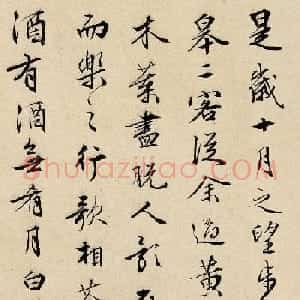 是歲十月之望步
皋二客從余過黃
木葉盡脫人影在
而樂之行歌相答
酒有酒無肴月白
Shufaziliao.com